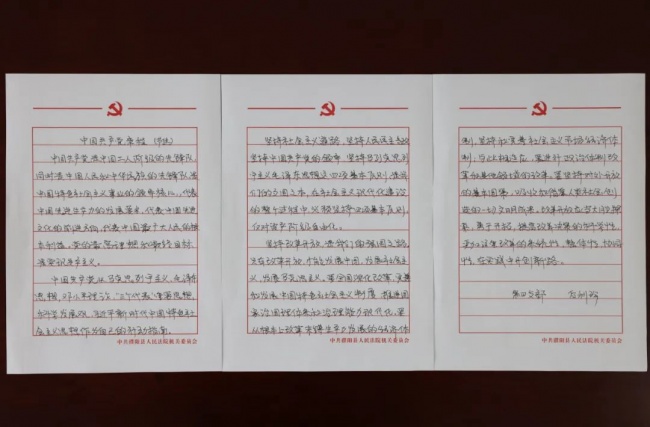 中国共产党章程（节选）
中国共产党是中国工人阶级的先锋队，
同时是中国人民和中华民族的先锋队，是
中国特色社会主义事业的领导核心，代表
中国先进生产力的发展要求，代表中国先进
文化的前进方向，代表中国最广大人民的根
本利益。党的最高理想和最终目标
是实现共产主义。
中国共产党以马克思列宁主义、毛泽东
思想、邓小平理论、“三个代表”重要思想、
科学发展观、习近平新时代中国特色社
会主义思想作为自己的行动指南。
中共濮阳县人民法院机关委员会
坚持社会主义道路、坚持人民民主专政、
坚持中国共产党的领导、坚持马列克思列
宁主义毛泽东思想这四项基本原则，是我
们的立国之本。在社会主义现代化建设
的整个过程中，必须坚持四项基本原则，
反对资产阶级自由化。
坚持改革开放，是我们的强国之路。
只有改革开放，才能发展中国、发展社会主
义、发展马克思主义。要全面深化改革，完善
和发展中国特色社会主义制度，推进国
家治理体系和治理能力现代化。要
从根本上改革束缚生产力发展的经济体
中共濮阳县人民法院机关委员会
制，坚持和完善社会主义市场经济体
制；与此相适应，要进行政治体制改
革和其他领域的改革。要坚持对外开放
的基本国策，吸收和借鉴人类社会创
造的一切文明成果。改革开放应当大胆探
索，勇于开拓，提高改革决策的科学性，
更加注重改革的系统性、整体性、协同
性，在实践中开创新路。
第四支部
中共濮阳县人民法院机关委员会